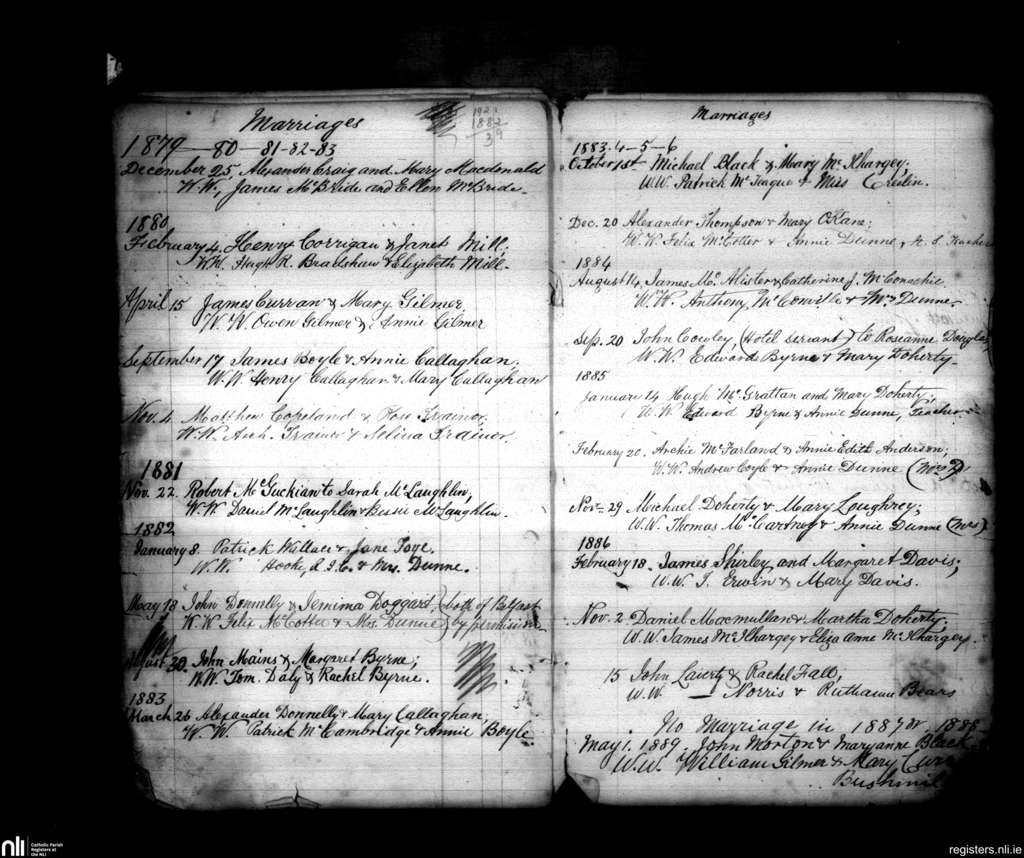 Marriages
192
1882
39
1879—80—81-82-83
December 25, Alexander Craig and Mary Macdonald
W.W. James McBride and Ellen McBride
1880
February 4, Henry Corrigan & Janet Mill.
W.W. Hugh R. Bradshaw & Elizabeth Mill.
April 15 James Curran & Mary Gilmer
W.W. Owen Gilmer & Annie Gilmer
September 17 James Boyle & Annie Callaghan,
W.W. Henry Callaghan & Mary Callaghan
Nov. 4 Matthew Copeland & Rose Trainor,
W.W. Arch. Trainor & Trainor.
1881
Nov. 22. Robert McGuckian to Sarah McLaughlin,
W.W. Daniel McLaughlin & Bessie McLaughlin.
1882
January 8. Patrick Wallace & Jane Foye.
W.W. Hooke, & Mrs. Dunne.
May 18 John Donnelly & Jemima Doggart, (both of Belfast
W.W. Felix McCotter & Mrs. Dunne) by permission
August 30. John Mains & Margaret Byrne;
W.W. Tom. Daly & Rachel Byrne.
1883
March 26 Alexander Donnelly & Mary Callaghan;
W.W. Patrick McCambridge & Annie Boyle
Marriages
1883-4—5—6
October 1st Michael Black & Mary McKhargey;
W.W. Patrick McTeague & Miss
Dec. 20 Alexander Thompson & Mary O'Kane;
W.W. Felix McCotter & Annie Dunne,
1884
August 14, James McAlister & Catherine J. McConachie
W.W. Anthony McConville & Mrs Dunne
Sep. 20 John Cowley, (Hotel servant) to Roseanne Douglas
W.W. Edward Byrne & Mary Doherty
1885
January 14 Hugh McGrattan and Mary Doherty;
W.W. Edward Byrne & Annie Dunne, Teacher
February 20. Archie McFarland & Annie Edith Anderson;
W.W. Andrew Coyle & Annie Dunne (Mrs)
Nov 29 Michael Doherty & Mary Loughrey;
W.W. Thomas McCartney & Annie Dunne (Mrs)
1886
February 18. James Shirley and Margaret Davis;
W.W. J. Erwin & Mary Davis.
Nov. 2 Daniel Macmullan & Martha Doherty;
W.W. James McKhargey & Eliza Anne McKhargey.
15 John Laverty & Rachel Fall,
W.W. — Norris & Ruthanne Bears
No Marriage in 1887 or 1888
May 1. 1889, John Morton & Maryanne Black
W.W. William Gilmer & Mary
Bushmil
nli
Catholic Parish
Registers at
the NLI
registers.nli.ie